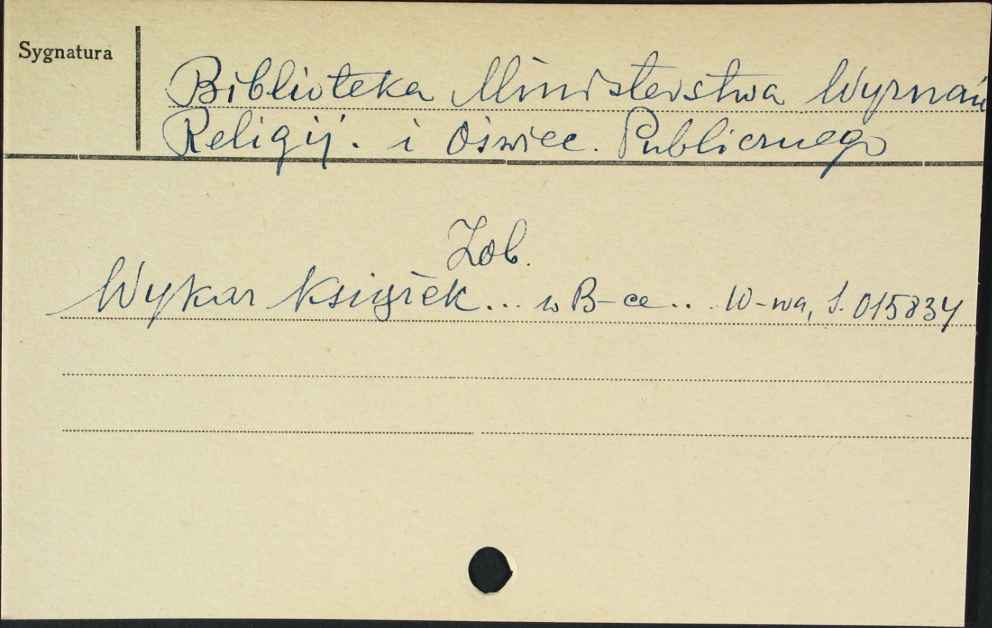 Sygnatura
Biblioteka Ministerstwa Wyznań
Religij. i Oświec. Publicznego
Zob.
Wykaz książek... w B-ce... W-wa, S. 015834